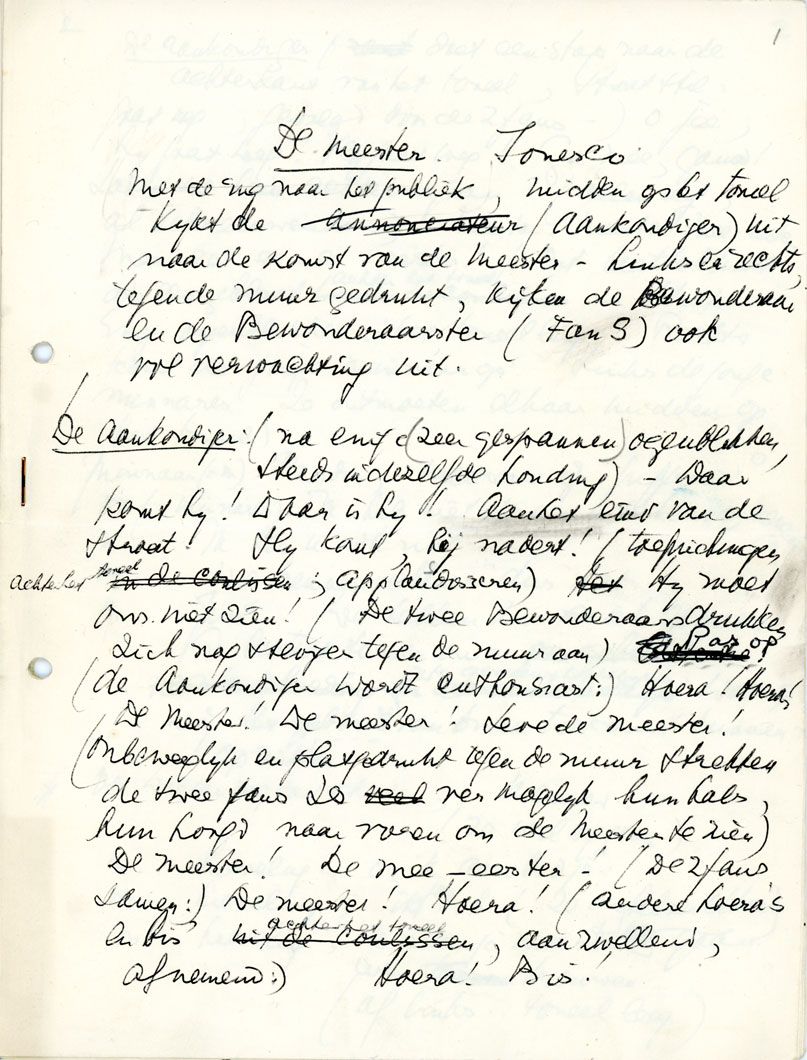 1
De meester. Ionesco
Met de rug naar het publiek, midden op het toneel
kykt de annonciateur (Aankondiger) uit
naar de komst van de meester - links en rechts,
tegen de muur gedrukt, kijken de Bewonderaar
en de Bewonderaarster (Fans) ook
vol verwachting uit.
De Aankondiger: (na enige (zeer gespannen) ogenblikken,
steeds in dezelfde houding) - Daar
komt hy! Daar is hy! Aan het eind van de
straat! Hy komt, hij nadert! (toejuichingen
achter het toneel in de coulissen; applaudisseren) Hy moet
ons niet zien! (De twee Bewonderaars drukken
zich nog steviger tegen de muur aan) Pas op
(de Aankondiger wordt enthousiast:) Hoera! Hoera!
De Meester! De meester! Leve de meester!
(onbeweglyk en platgedrukt tegen de muur strekken
de twee fans zo veel ver mogelyk hun hals,
hun hoofd naar voren om de Meester te zien)
De meester! De mee-eester! (De 2 fans
samen:) De meester! Hoera! (andere hoera's
en bis achter het toneel uit de coulissen, aanzwellend,
afnemend:) Hoera! Bis!